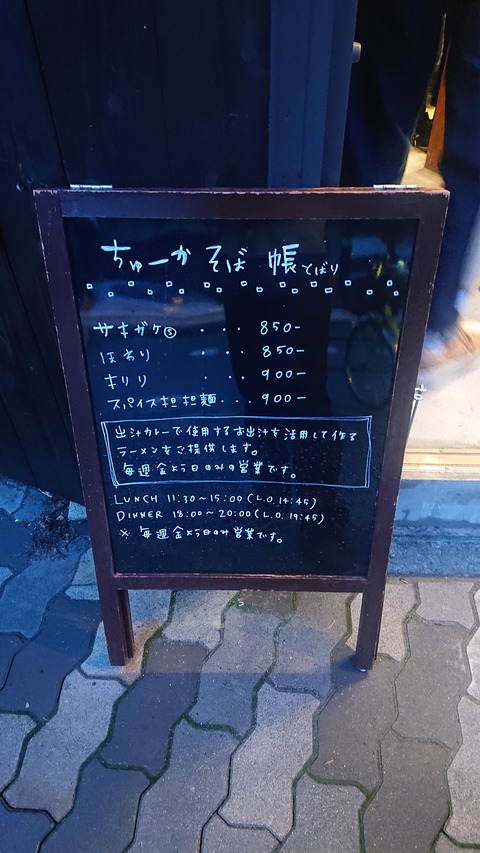 ちゅーか そば 帳 とばり
サキガケ⑤ ・・・ 850-
ほわり ・・・ 850-
キリリ ・・・ 900-
スパイス担担麺 ・・・ 900-
出汁カレーで使用するお出汁を活用して作る
ラーメンをご提供します。
毎週金よう日のみの営業です。
LUNCH 11:30～15:00(L.O.14:45)
DINNER 18:00～20:00(L.O.19:45)
※ 毎週金よう日のみ営業です。